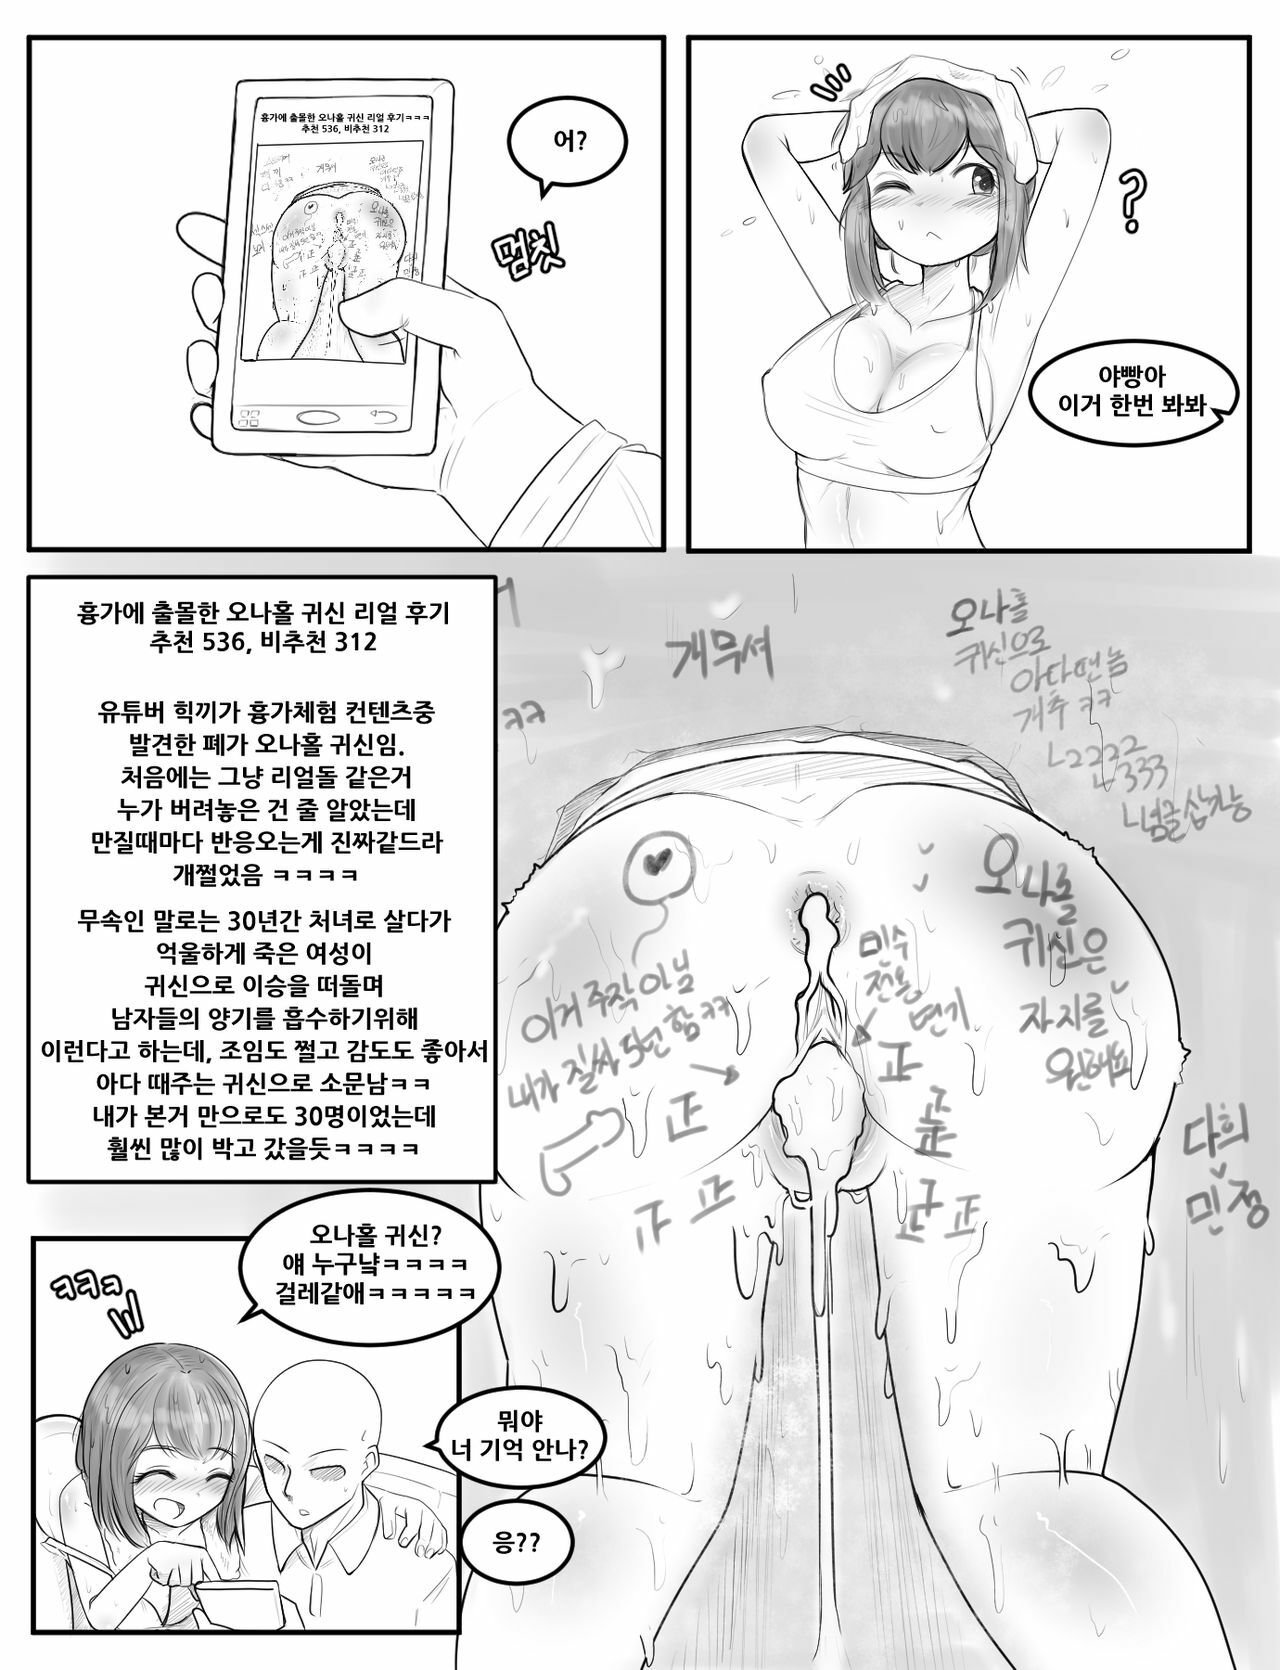 흉가에 출몰한 오나홀 귀신 리얼 후기ㅋㅋㅋ
추천 536, 비추천 312
개무셔
어?
멈칫
?
야빵아
이거 한번 봐봐
흉가에 출몰한 오나홀 귀신 리얼 후기
추천 536, 비추천 312
유튜버 힉끼가 흉가체험 컨텐츠중
발견한 폐가 오나홀 귀신임.
처음에는 그냥 리얼돌 같은거
누가 버려놓은 건 줄 알았는데
만질때마다 반응오는게 진짜같드라
개쩔었음 ㅋㅋㅋㅋ
무속인 말로는 30년간 처녀로 살다가
억울하게 죽은 여성이
귀신으로 이승을 떠돌며
남자들의 양기를 흡수하기위해
이런다고 하는데, 조임도 쩔고 감도도 좋아서
아다 때주는 귀신으로 소문남ㅋㅋ
내가 본거 만으로도 30명이었는데
훨씬 많이 박고 갔을듯ㅋㅋㅋㅋ
개무셔
ㅋㅋ
오나홀
귀신으로
아다뗀놈
개추 ㅋㅋ
ㄴ2222
ㄴ333
ㄴ념글십가능
오나홀
귀신은
자지를
원해요
이거 주작 아님
내가 질싸 5번 함ㅋㅋ
민수
전용
변기
正
正
正
正
正
正
다희
민정
ㅋㅋㅋ
오나홀 귀신?
얘 누구냨ㅋㅋㅋㅋ
걸레같애ㅋㅋㅋㅋㅋ
뭐야
너 기억 안나?
응??